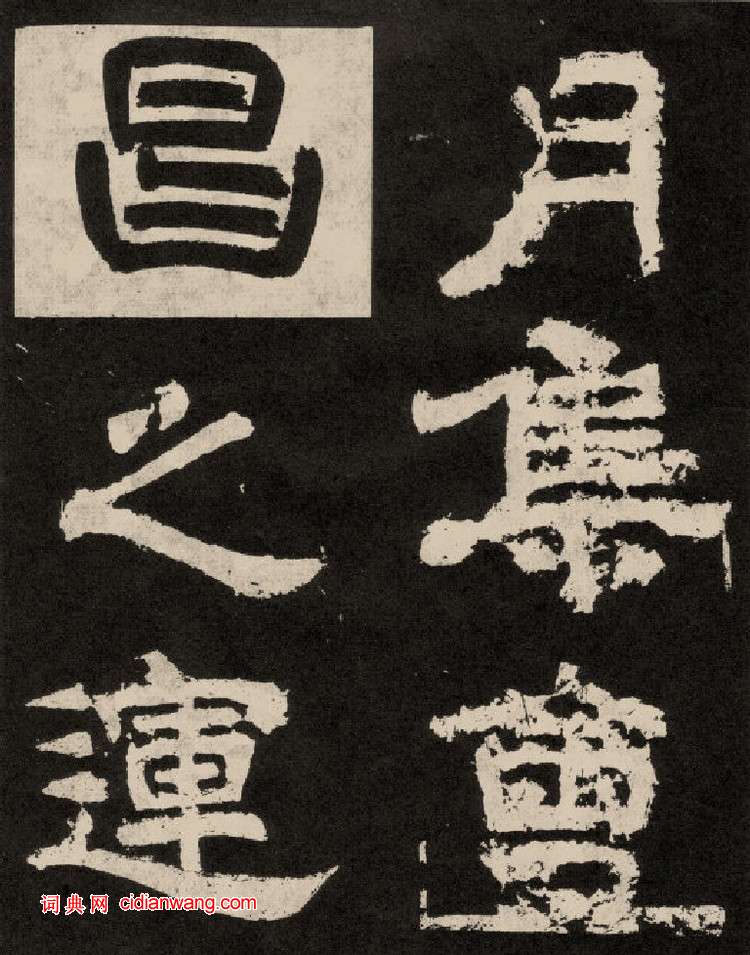 月集會
昌之運
词典网 cidianwang.com